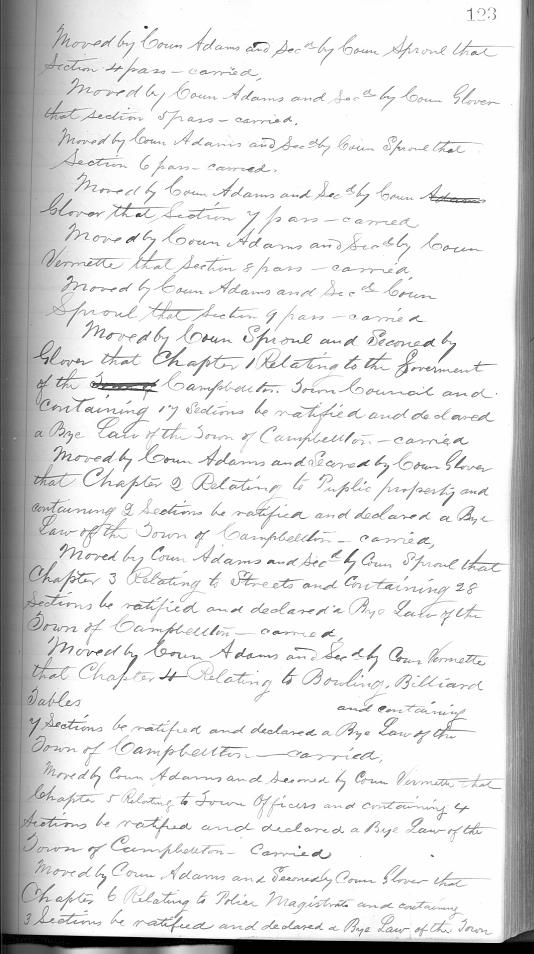 123
Moved by Coun Adams and Secd by Coun Sproul that
Section 4 pass - carried,
Moved by Coun Adams and Secd by Coun Glover
that section 5 pass - carried.
Moved by Coun Adams and Secd by Coun Sproul that
Section 6 pass - carried.
Moved by Coun Adams and Secd by Coun Adams
Glover that Section 7 pass - carried
Moved by Coun Adams and Secd by Coun
Vermette that Section 8 pass - carried,
Moved by Coun Adams and Secd Coun
Sproul that Section 9 pass - carried
Moved by Coun Sproul and Seconed by
Glover that Chapter 1 Relating to the Goverment
of the Campbellton Town Council and
containing 17 Sections be ratified and declared
a Bye Law of the Town of Campbellton - carried
Moved by Coun Adams and Seconed by Coun Glover
that Chapter 2 Relating to Public property and
containing 2 Sections be ratified and declared a Bye
Law of the Town of Campbellton - carried,
Moved by Coun Adams and Secd by Coun Sproul that
Chapter 3 Relating to Streets and Containing 28
Sections be ratified and declared a Bye Law of the
Town of Campbellton - carried,
Moved by Coun Adams and Secd by Coun Vermette
that Chapter 4 Relating to Bowling, Billiard
Tables and containing
7 Sections be ratified and declared a Bye Law of the
Town of Campbellton - carried,
Moved by Coun Adams and Seconed by Coun Vermette that
Chapter 5 Relating to Town Officers and containing 4
Sections be ratified and declared a Bye Law of the
Town of Campbellton - Carried
Moved by Coun Adams and Seconed by Coun Glover that
Chapter 6 Relating to Police Magistrate and containing
3 Sections be ratified and declared a Bye Law of the Town